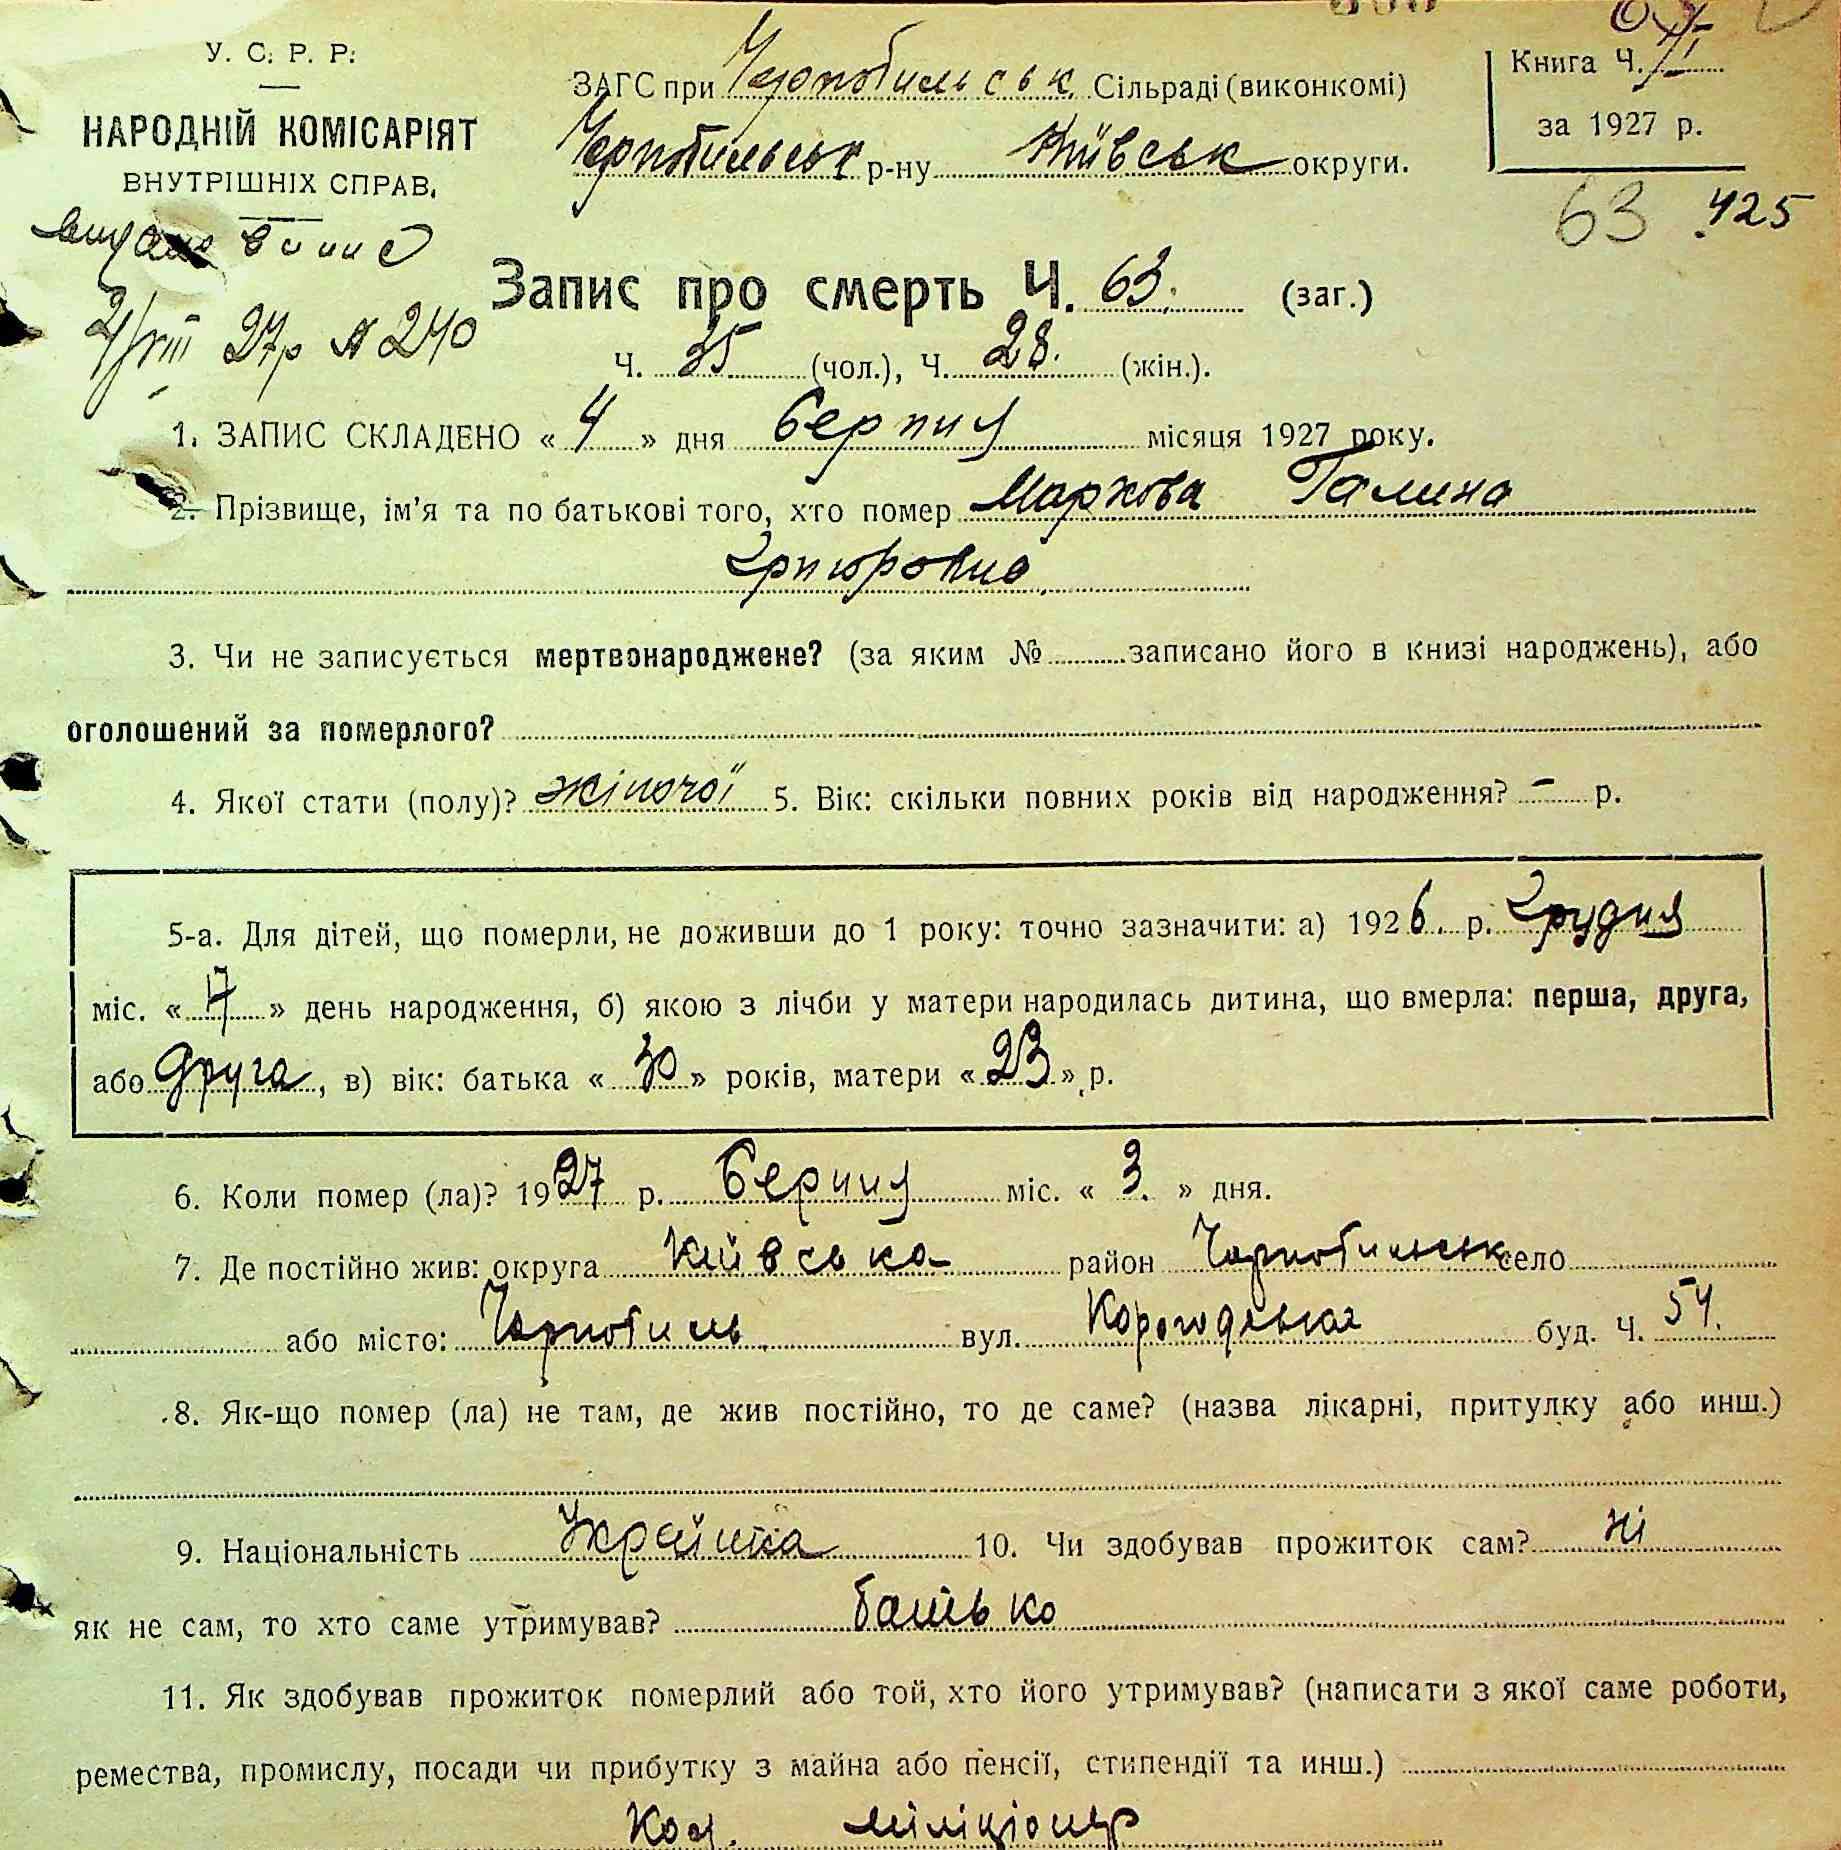 У. С. Р. Р.
НАРОДНІЙ КОМІСАРІЯТ
ВНУТРІШНІХ СПРАВ.
ЗАГС при Чернобильськ. Сільраді (виконкомі)
Чернобильськ р-ну Київськ округи.
Книга Ч. II
за 1927 р.
63 425
видано випис
27р № 240
Запис про смерть Ч. 63. (заг.)
Ч. 35 (чол.), Ч. 28. (жін.).
1. ЗАПИС СКЛАДЕНО « 4 » дня серпня місяця 1927 року.
2. Прізвище, ім'я та по батькові того, хто помер Маркова Галина
Григоровна
3. Чи не записується мертвонароджене? (за яким № записано його в книзі народжень), або
оголошений за померлого?
4. Якої стати (полу)? жіночої 5. Вік: скільки повних років від народження? – р.
5-а. Для дітей, що померли, не доживши до 1 року: точно зазначити: а) 1926. р. Грудня
міс. « » день народження, б) якою з лічби у матери народилась дитина, що вмерла: перша, друга,
або друга, в) вік: батька « 30 » років, матери « 23 » р.
6. Коли помер (ла)? 1927 р. Серпня міс. « 3. » дня.
7. Де постійно жив: округа Київська район Чорнобильськ село
або місто: Чорнобиль вул. Корогодська буд. Ч. 54.
8. Як-що помер (ла) не там, де жив постійно, то де саме? (назва лікарні, притулку або инш.)
9. Національність Українка 10. Чи здобував прожиток сам? ні
як не сам, то хто саме утримував? батько
11. Як здобував прожиток померлий або той, хто його утримував? (написати з якої саме роботи,
ремества, промислу, посади чи прибутку з майна або пенсії, стипендії та инш.)
міліціонер